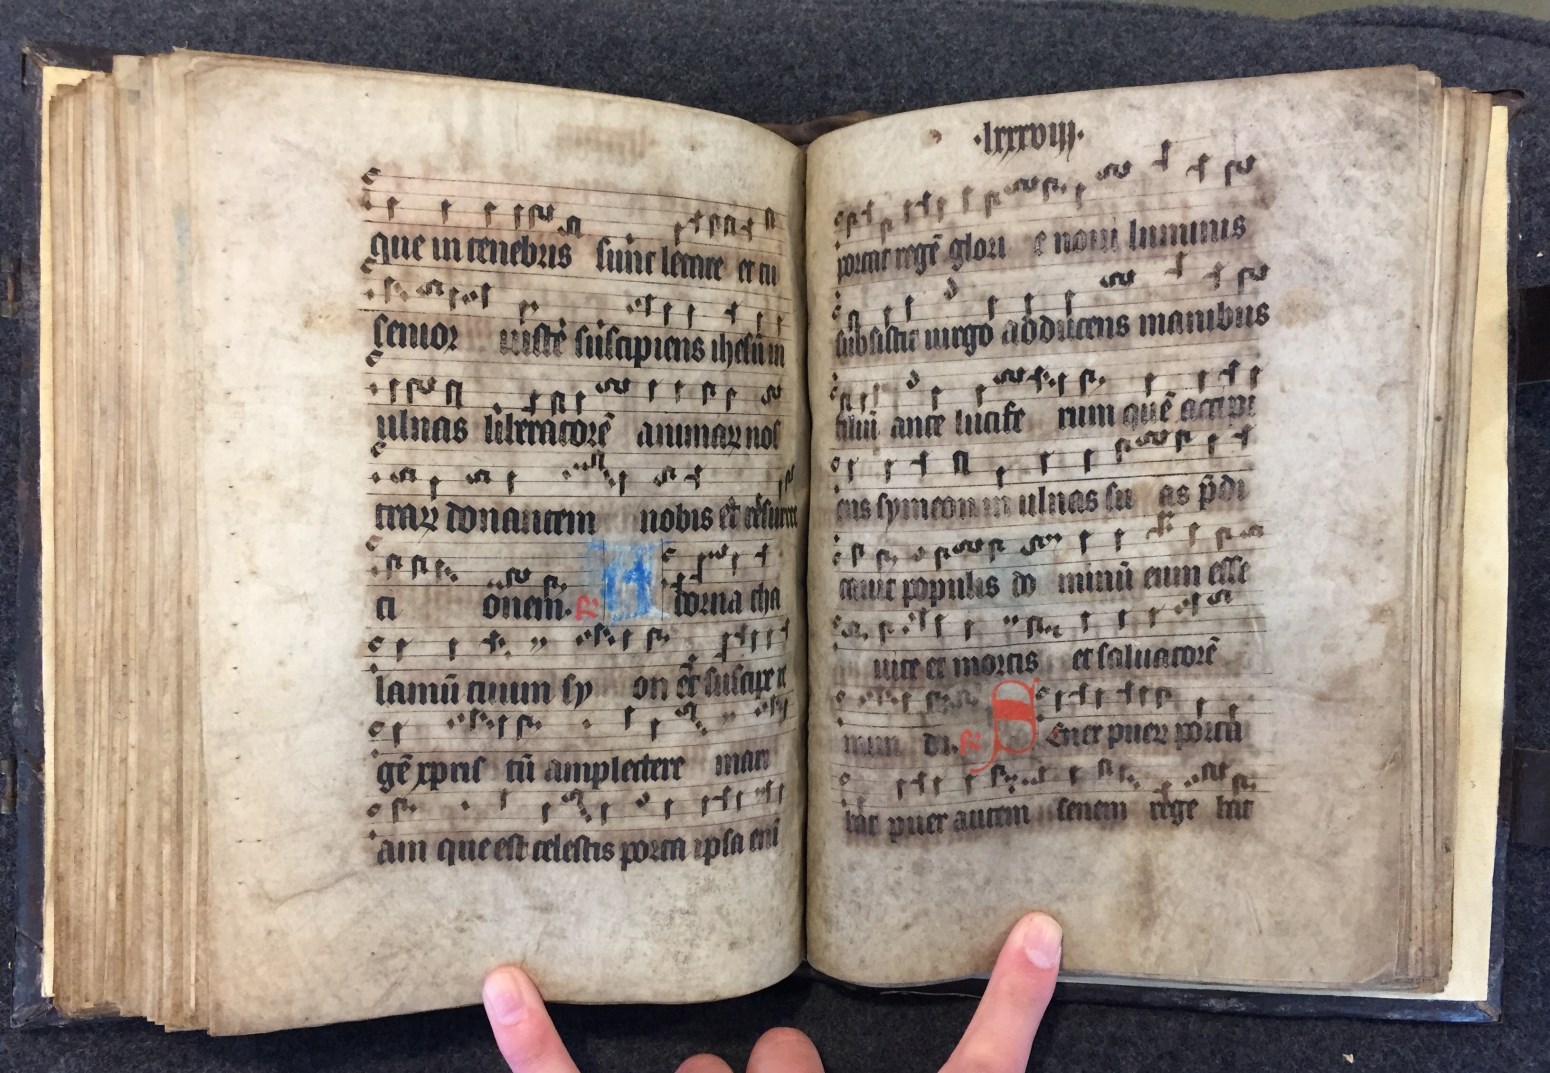 que in tenebris sunt letare et tu
senior iuste suscipiens ihesū in
ulnas liberatorē animaꝝ nos
traꝝ donantem nobis et resurrec
ci onem. R̄ Adorna tha
lamū tuum sy on et suscipe re
gē xpm̄ tū amplectere mari
am que est celestis porta ipsa eni
·lxxxviij·
portat regē glori e noui luminis
subsistit uirgo adducens manibus
filiū ante lucife rum quē accipi
ens symeon in ulnas su as p̄di
cauit populis do minū eum esse
uite et mortis et saluatorē
mun di. R̄ Senex puerū portā
bat puer autem senem rege bat